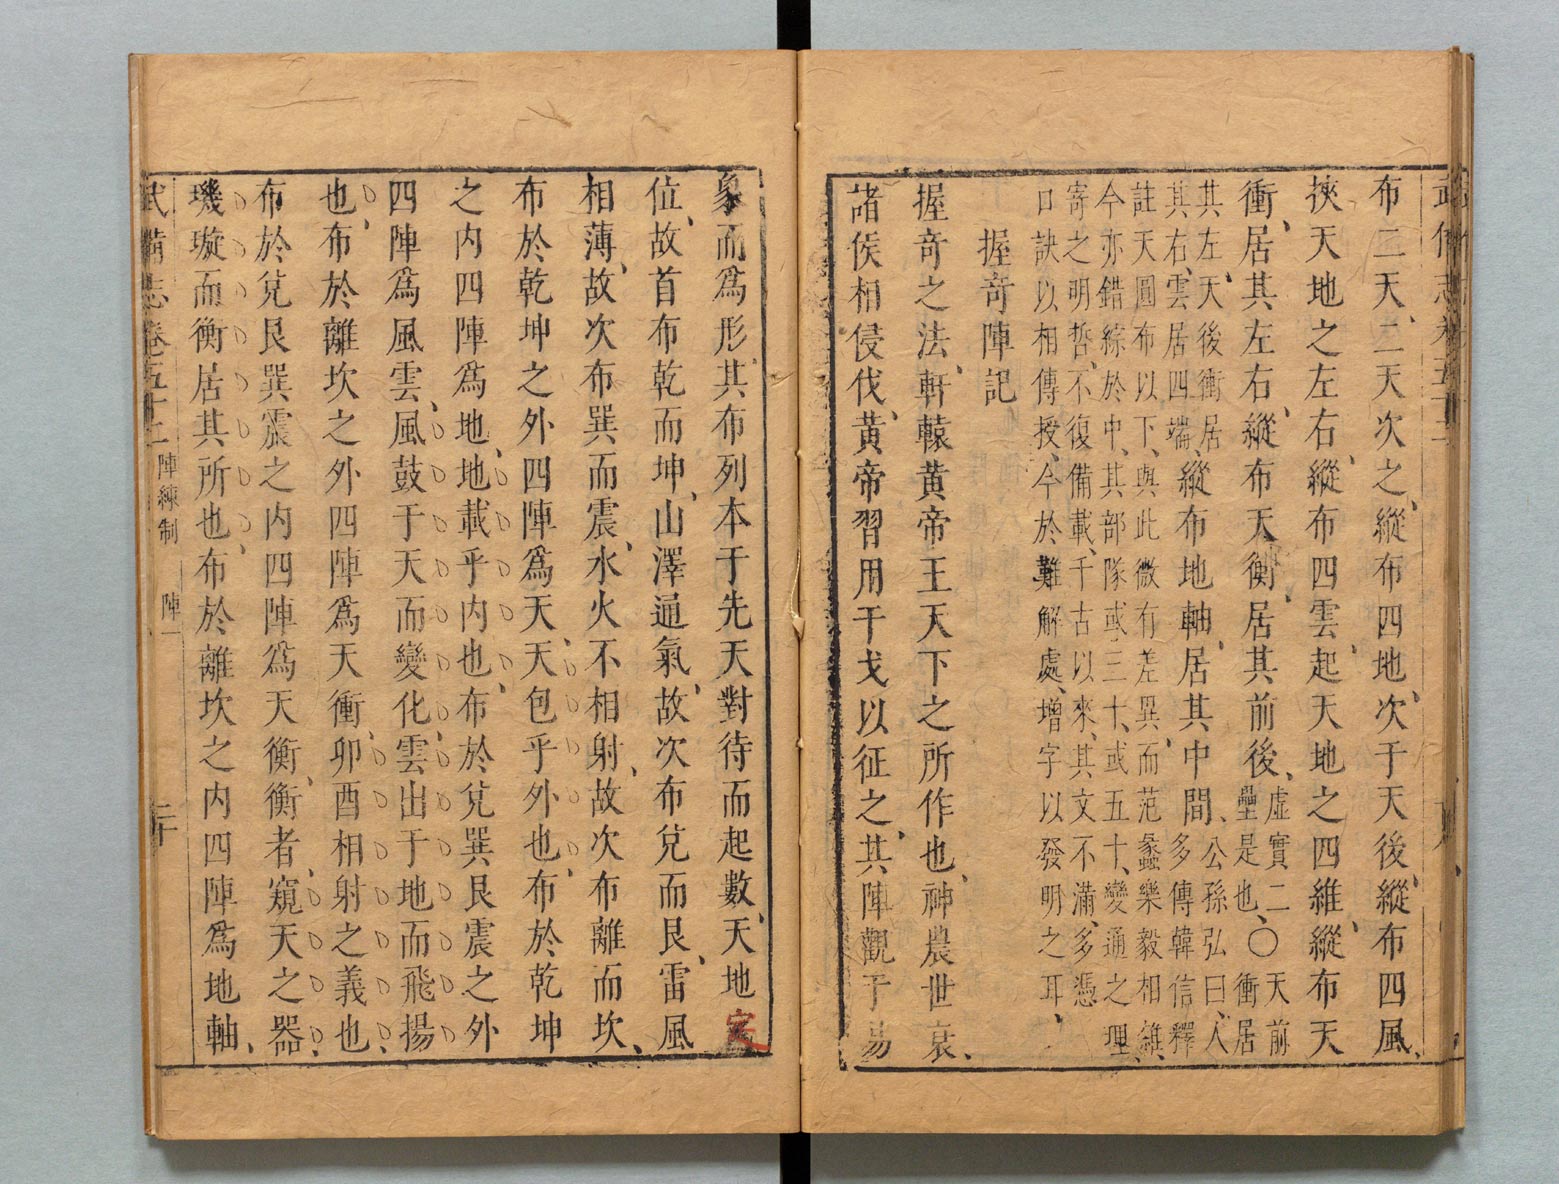 布二天、二天次之、縱布四地、次于天後、縱布四風、
挾天地之左右、縱布四雲、起天地之四維、縱布天
衝、居其左右、縱布天衡、居其前後、虛實二
壘是也、〇天前
衝居
其左、天後衝居
其右、雲居四端、縱布地軸、居其中間、公孫弘曰、人
多傳韓信釋
註天圓布以下、與此微有差異、而范蠡樂毅相雜、
今亦錯綜於中、其部隊或三十、或五十、變通之理、
寄之明哲、不復備載、千古以來、其文不滿、多憑
口訣以相傳授、今於難解處、增字以發明之耳、
握奇陣記
握奇之法、軒轅黃帝王天下之所作也、神農世衰、
諸侯相侵伐、黃帝習用干戈以征之、其陣觀于易
象而爲形、其布列本于先天對待而起數、天地定
位、故首布乾而坤、山澤通氣、故次布兌而艮、雷風
相薄、故次布巽而震、水火不相射、故次布離而坎、
布於乾坤之外四陣爲天、天包乎外也、布於乾坤
之内四陣爲地、地載乎内也、布於兌巽艮震之外
四陣爲風雲、風鼓于天而變化、雲出于地而飛揚
也、布於離坎之外四陣爲天衝、卯酉相射之義也、
布於兌艮巽震之内四陣爲天衡、衡者、窺天之器、
璣璇而衡居其所也、布於離坎之内四陣爲地軸、
武備志卷五十二 陣練制 陣一 二十